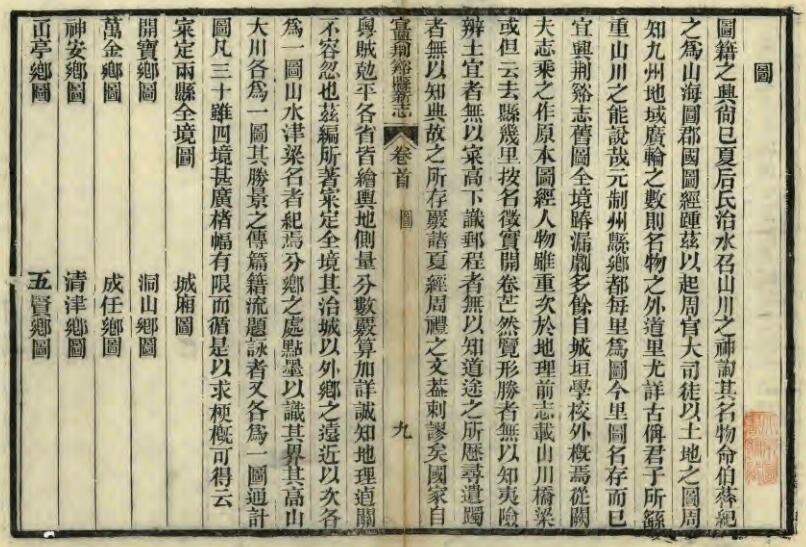 圖
圖籍之興尙巳夏后氏治水召山川之神詢其名物命伯益紀
之爲山海圖郡國圖經踵茲以起周官大司徒以土地之圖周
知九州地域廣輪之數則名物之外道里尤詳古偁君子所繇
重山川之能說哉元制州縣鄉都每里爲圖今里圖名存而巳
宜興荆谿志舊圖全境踳漏劇多餘自城垣學校外槪焉從闕
夫志乘之作原本圖經人物雖重次於地理前志載山川橋梁
或但云去縣幾里按名徵實開卷芒然覽形勝者無以知夷險
辨土宜者無以宷高下識郵程者無以知道途之所歷尋遺躅
者無以知典故之所存覈諸夏經周禮之文葢刺謬矣國家自
宜興荆谿縣新志
卷首
圖
九
粵賊勊平各省皆繪輿地測量分數覈算加詳誠知地理逌關
不容忽也茲編所著宷定全境其治城以外鄉之遠近以次各
爲一圖山水津梁名者紀焉分鄉之處點墨以識其界其高山
大川各爲一圖其勝景之傳篇籍流題詠者又各爲一圖通計
圖凡三十雖四境甚廣楮幅有限而循是以求梗槪可得云
宷定兩縣全境圖
城廂圖
開寶鄉圖
洞山鄉圖
萬金鄉圖
成任鄉圖
神安鄉圖
清津鄉圖
亭鄉圖
五賢鄉圖